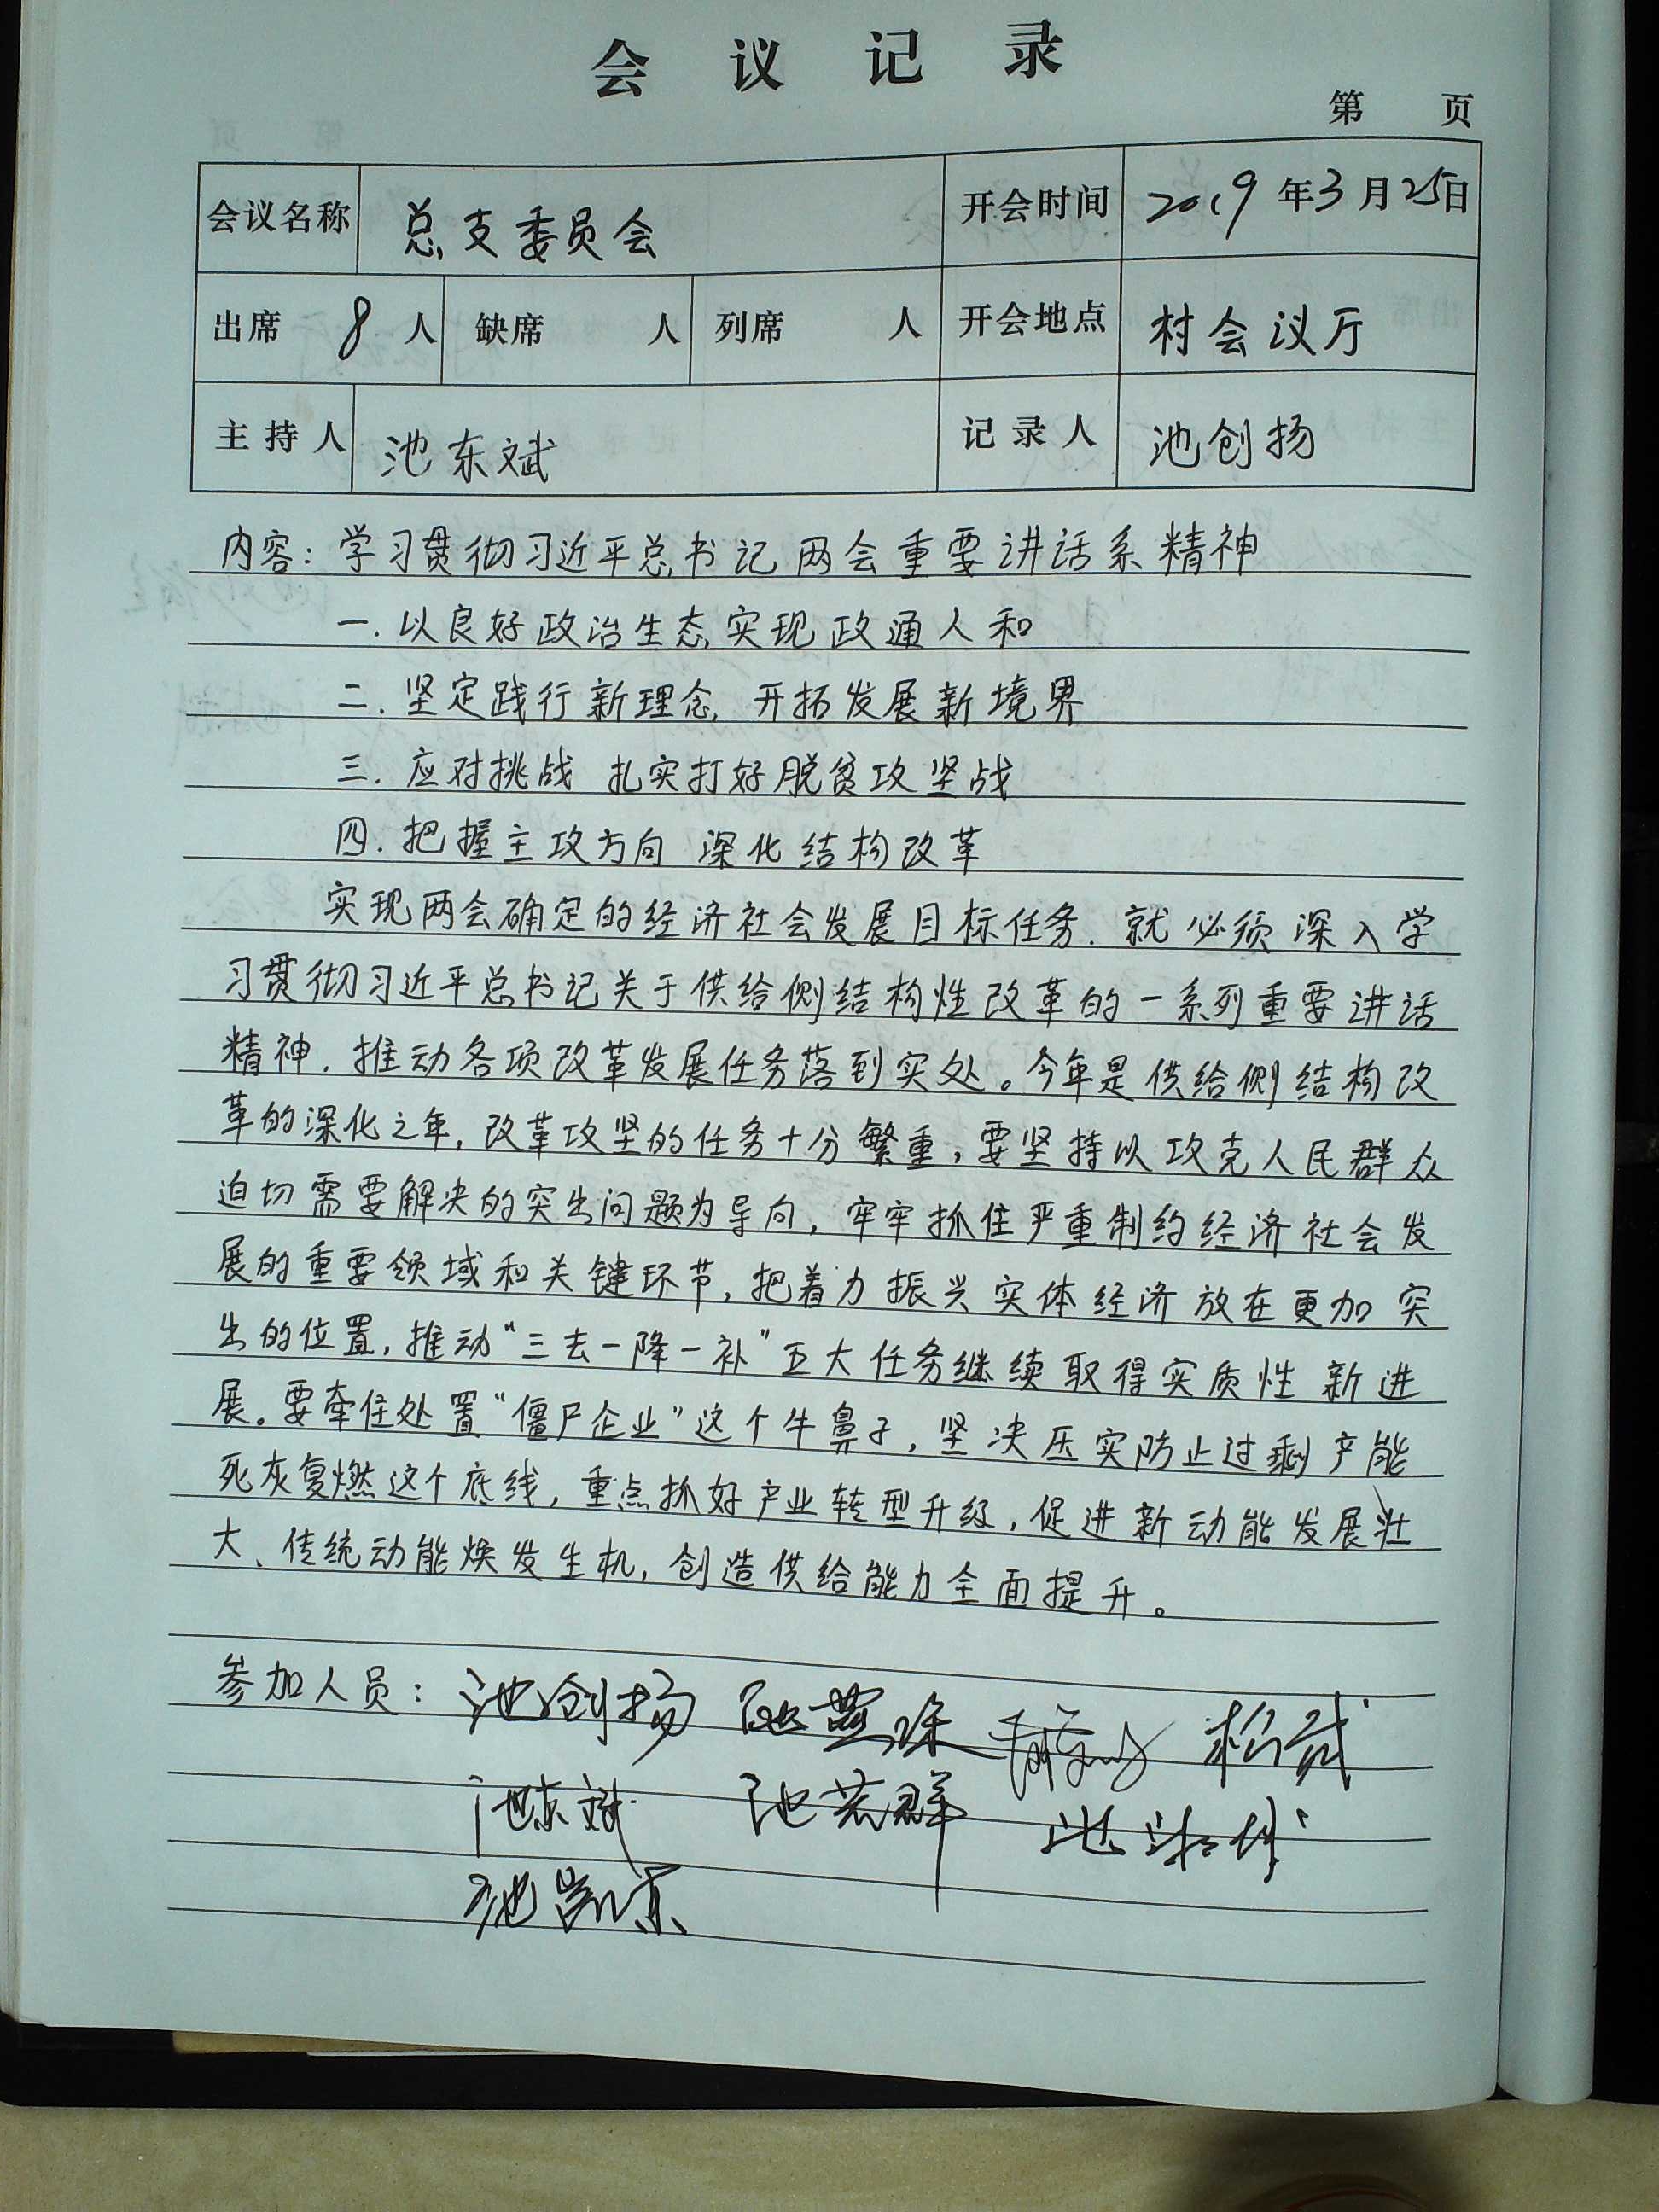 会议记录
第 页
会议名称 总支委员会 开会时间 2019年3月25日
出席 8 人 缺席 人 列席 人 开会地点 村会议厅
主持人 池东斌 记录人 池创扬
内容：学习贯彻习近平总书记两会重要讲话系精神
一.以良好政治生态,实现政通人和
二.坚定践行新理念,开拓发展新境界
三.应对挑战 扎实打好脱贫攻坚战
四.把握主攻方向 深化结构改革
实现两会确定的经济社会发展目标任务.就必须深入学
习贯彻习近平总书记关于供给侧结构性改革的一系列重要讲话
精神.推动各项改革发展任务落到实处。今年是供给侧结构改
革的深化之年,改革攻坚的任务十分繁重,要坚持以攻克人民群众
迫切需要解决的突出问题为导向,牢牢抓住严重制约经济社会发
展的重要领域和关键环节,把着力振兴实体经济放在更加突
出的位置,推动“三去一降一补”五大任务继续取得实质性新进
展。要牵住处置“僵尸企业”这个牛鼻子,坚决压实防止过剩产能
死灰复燃这个底线,重点抓好产业转型升级,促进新动能发展壮
大、传统动能焕发生机,创造供给能力全面提升。
参加人员：池创扬
池东斌 池 群 池
池凯东